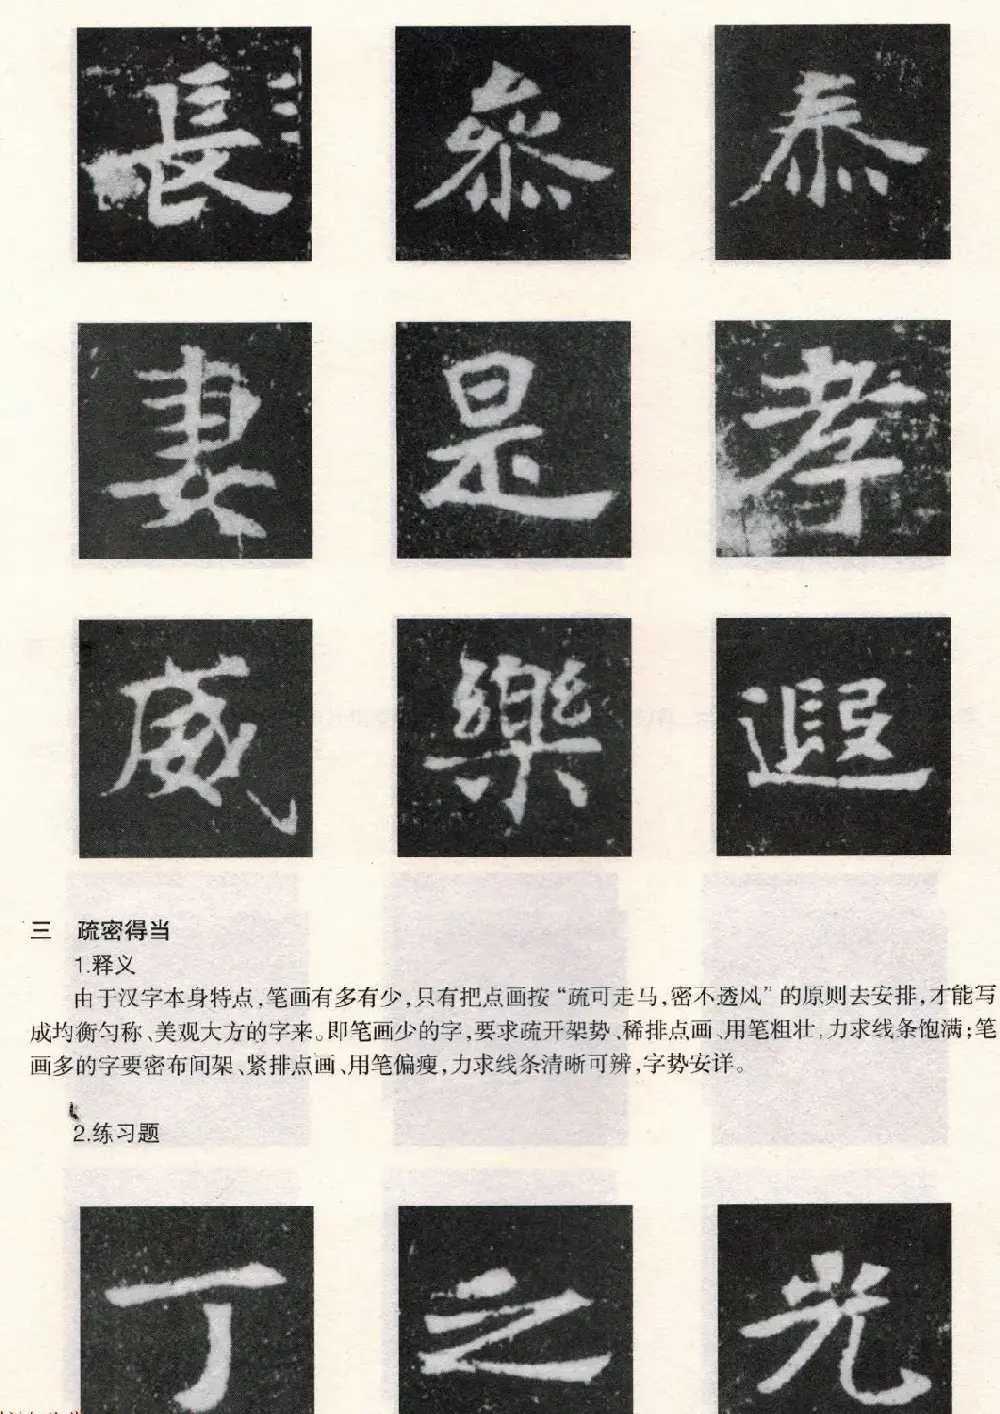 長 叅 泰
妻 是 孝
威 樂 遐
三 疏密得当
1.释义
由于汉字本身特点,笔画有多有少,只有把点画按“疏可走马,密不透风”的原则去安排,才能写
成均衡匀称、美观大方的字来。即笔画少的字,要求疏开架势、稀排点画、用笔粗壮,力求线条饱满;笔
画多的字要密布间架、紧排点画、用笔偏瘦,力求线条清晰可辨,字势安详。
2.练习题
丁 之 光